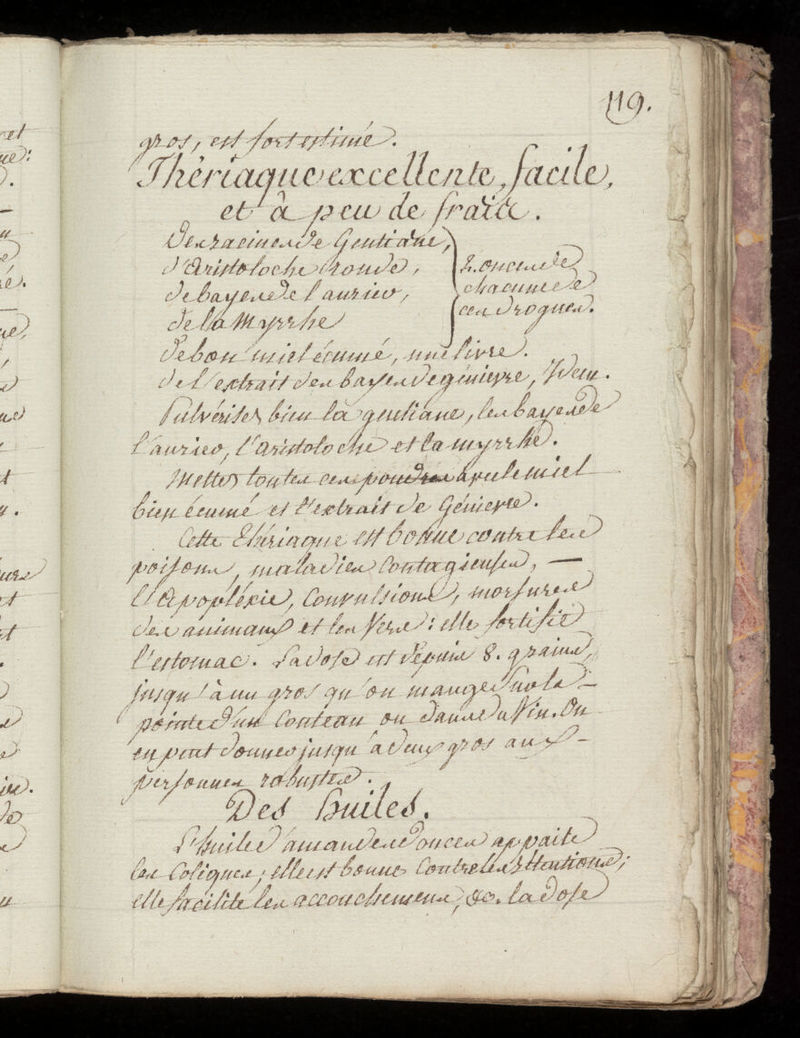 119.
gros, est fort estimé.
Thériaque excellente, facile,
et à peu de fraix.
Des racines de Gentiane,
d'Aristoloche ronde,
de bayes de laurier,
de la Myrrhe
2. onces de
chacune de
ces drogues.
de bon miel écumé, une livre.
de l'extrait des bayes de génievre, Idem.
Pulvérisez bien la gentiane, les bayes de
laurier, l'aristoloche et la myrrhe.
Mettez toutes ces poudres avec le miel
bien écumé et l'extrait de Génievre.
Cette Thériaque est bonne contre les
poisons, maladies Contagieuses, —
l'Apopléxie, Convulsions, morsures
des animaux et les Vers: elle fortifie
l'estomac. La dose est depuis 8. grains,
jusqu'à un gros qu'on mange sur la —
pointe d'un Couteau ou dans du Vin. On
en peut donner jusqu'à deux gros aux —
personnes robustes.
Des huiles.
L'huile d'amandes douces appaise
les Coliques; elle est bonne Contre les
elle facilite les accouchemens, &c. la dose